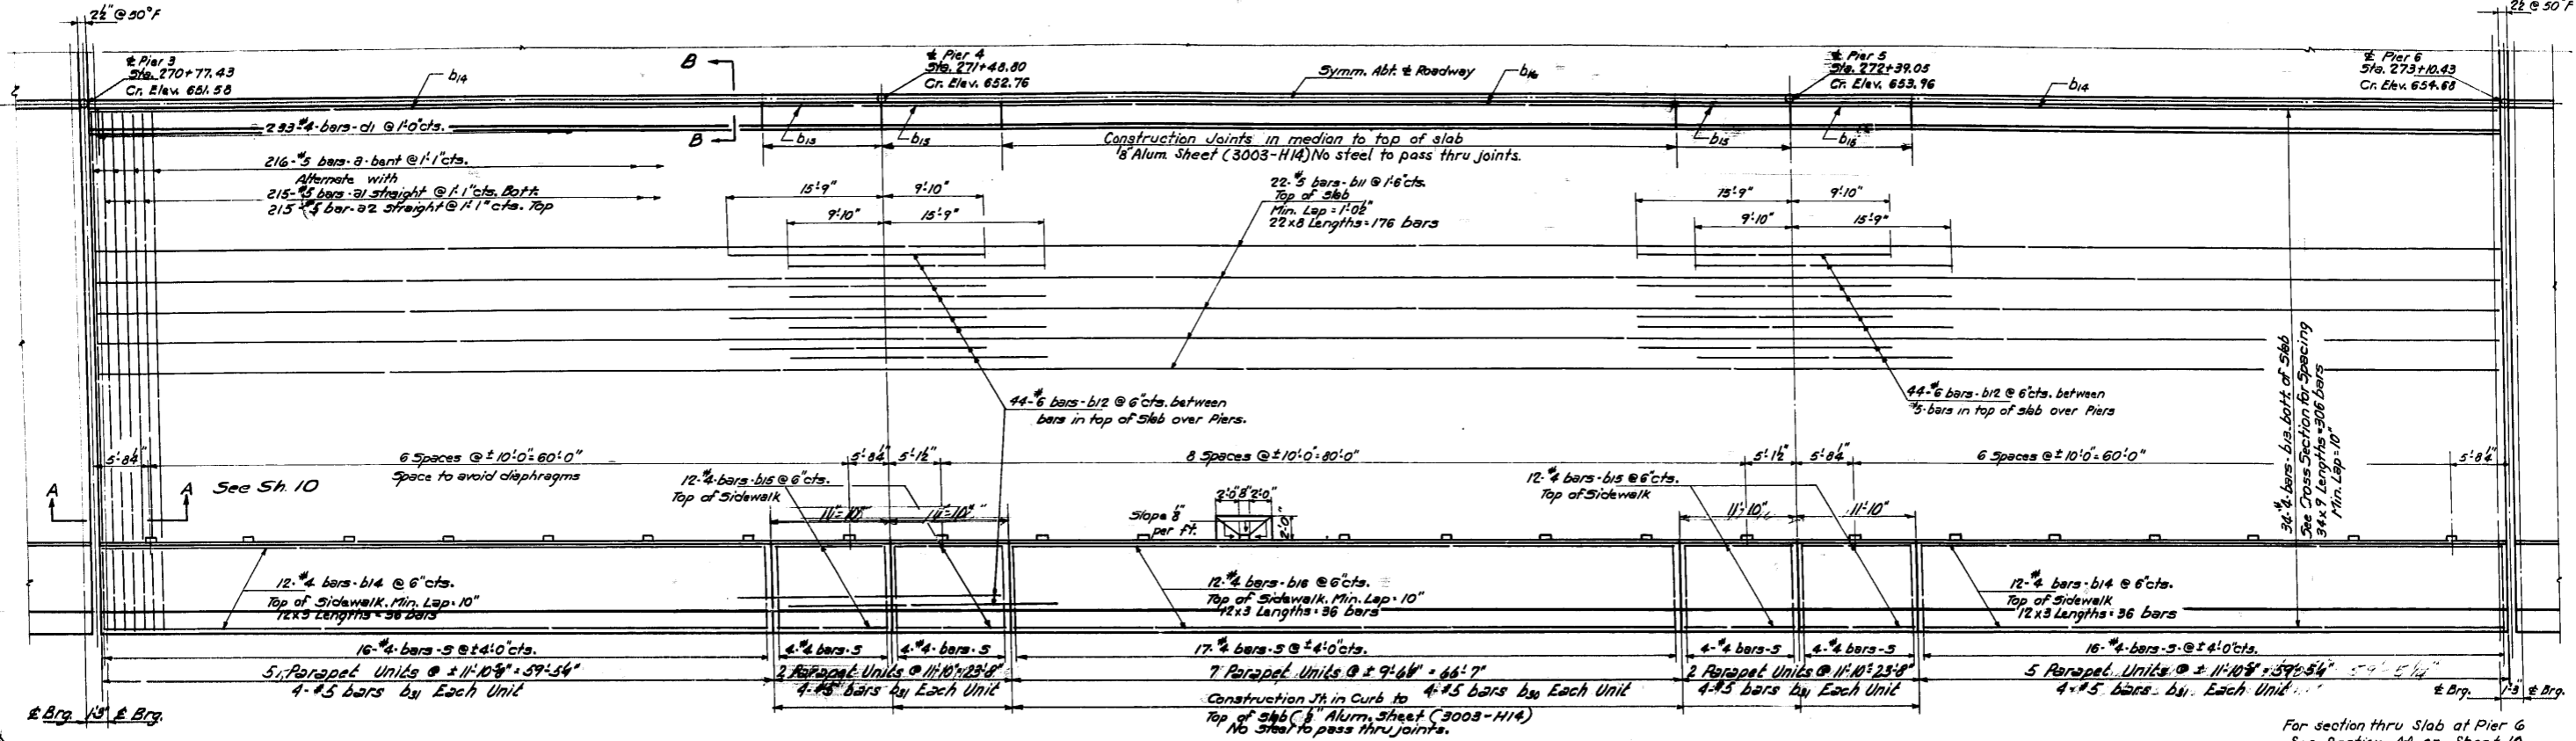 2½" @ 50°F
2½ @ 50°F
℄ Pier 3
Sta. 270+77.43
Cr. Elev. 651.58
b14
B
B
℄ Pier 4
Sta. 271+48.80
Cr. Elev. 652.76
Symm. Abt. ℄ Roadway
b16
℄ Pier 5
Sta. 272+39.05
Cr. Elev. 653.96
b14
℄ Pier 6
Sta. 273+10.43
Cr. Elev. 654.68
233-#4-bars-d1 @ 1'-0"cts.
b13
b15
Construction Joints in median to top of slab
⅛" Alum. Sheet (3003-H14) No steel to pass thru joints.
b15
b15
216-#5 bars-a-bent @ 1'-1"cts.
Alternate with
215-#5 bars-a1 straight @ 1'-1"cts. Bott.
215-#5 bar-a2 straight @ 1'-1"cts. Top
15'-9"
9'-10"
9'-10"
15'-9"
22-#5 bars-b11 @ 1'-6"cts.
Top of Slab
Min. Lap = 1'-0½"
22x8 Lengths=176 bars
15'-9"
9'-10"
9'-10"
15'-9"
44-#6 bars-b12 @ 6"cts. between
bars in top of Slab over Piers.
44-#6 bars-b12 @ 6"cts. between
#5-bars in top of slab over Piers
34-#4-bars-b13-bott. of Slab
See Cross Section for Spacing
34x9 Lengths=306 bars
Min. Lap=10"
5'-8¼"
6 Spaces @ ±10'-0"=60'-0"
Space to avoid diaphragms
5'-8¼"
5'-1½"
8 Spaces @ ±10'-0"=80'-0"
5'-1½"
5'-8¼"
6 Spaces @ ±10'-0"=60'-0"
5'-8¼"
A
A
See Sh. 10
12-#4-bars-b15 @ 6"cts.
Top of Sidewalk
11'-10"
11'-10"
Slope ⅛"
per ft.
2'-0" 8" 2'-0"
2'-0"
12-#4 bars-b15 @ 6"cts.
Top of Sidewalk
11'-10"
11'-10"
12-#4 bars-b14 @ 6"cts.
Top of Sidewalk. Min. Lap=10"
12x3 Lengths=36 bars
12-#4 bars-b16 @ 6"cts.
Top of Sidewalk. Min. Lap=10"
12x3 Lengths=36 bars
12-#4 bars-b14 @ 6"cts.
Top of Sidewalk
12x3 Lengths=36 bars
16-#4-bars-S @ ±4'-0"cts.
4-#4 bars-S
4-#4-bars-S
17-#4 bars-S @ ±4'-0"cts.
4-#4 bars-S
4-#4-bars-S
16-#4-bars-S @ ±4'-0"cts.
5 Parapet Units @ ± 11'-10⅝" = 59'-5¼"
2 Parapet Units @ 11'-10"=23'-8"
7 Parapet Units @ ± 9'-6⅛" = 66'-7"
2 Parapet Units @ 11'-10"=23'-8"
5 Parapet Units @ ± 11'-10⅝" = 59'-5¼"
4-#5 bars b31 Each Unit
4-#5 bars b31 Each Unit
4-#5 bars b30 Each Unit
4-#5 bars b31 Each Unit
4-#5 bars b31 Each Unit
Construction Jt. in Curb to
Top of Slab (⅛" Alum. Sheet (3003-H14)
No Steel to pass thru joints.
℄ Brg.
1'-3"
℄ Brg.
℄ Brg.
1'-3"
℄ Brg.
For section thru Slab at Pier 6